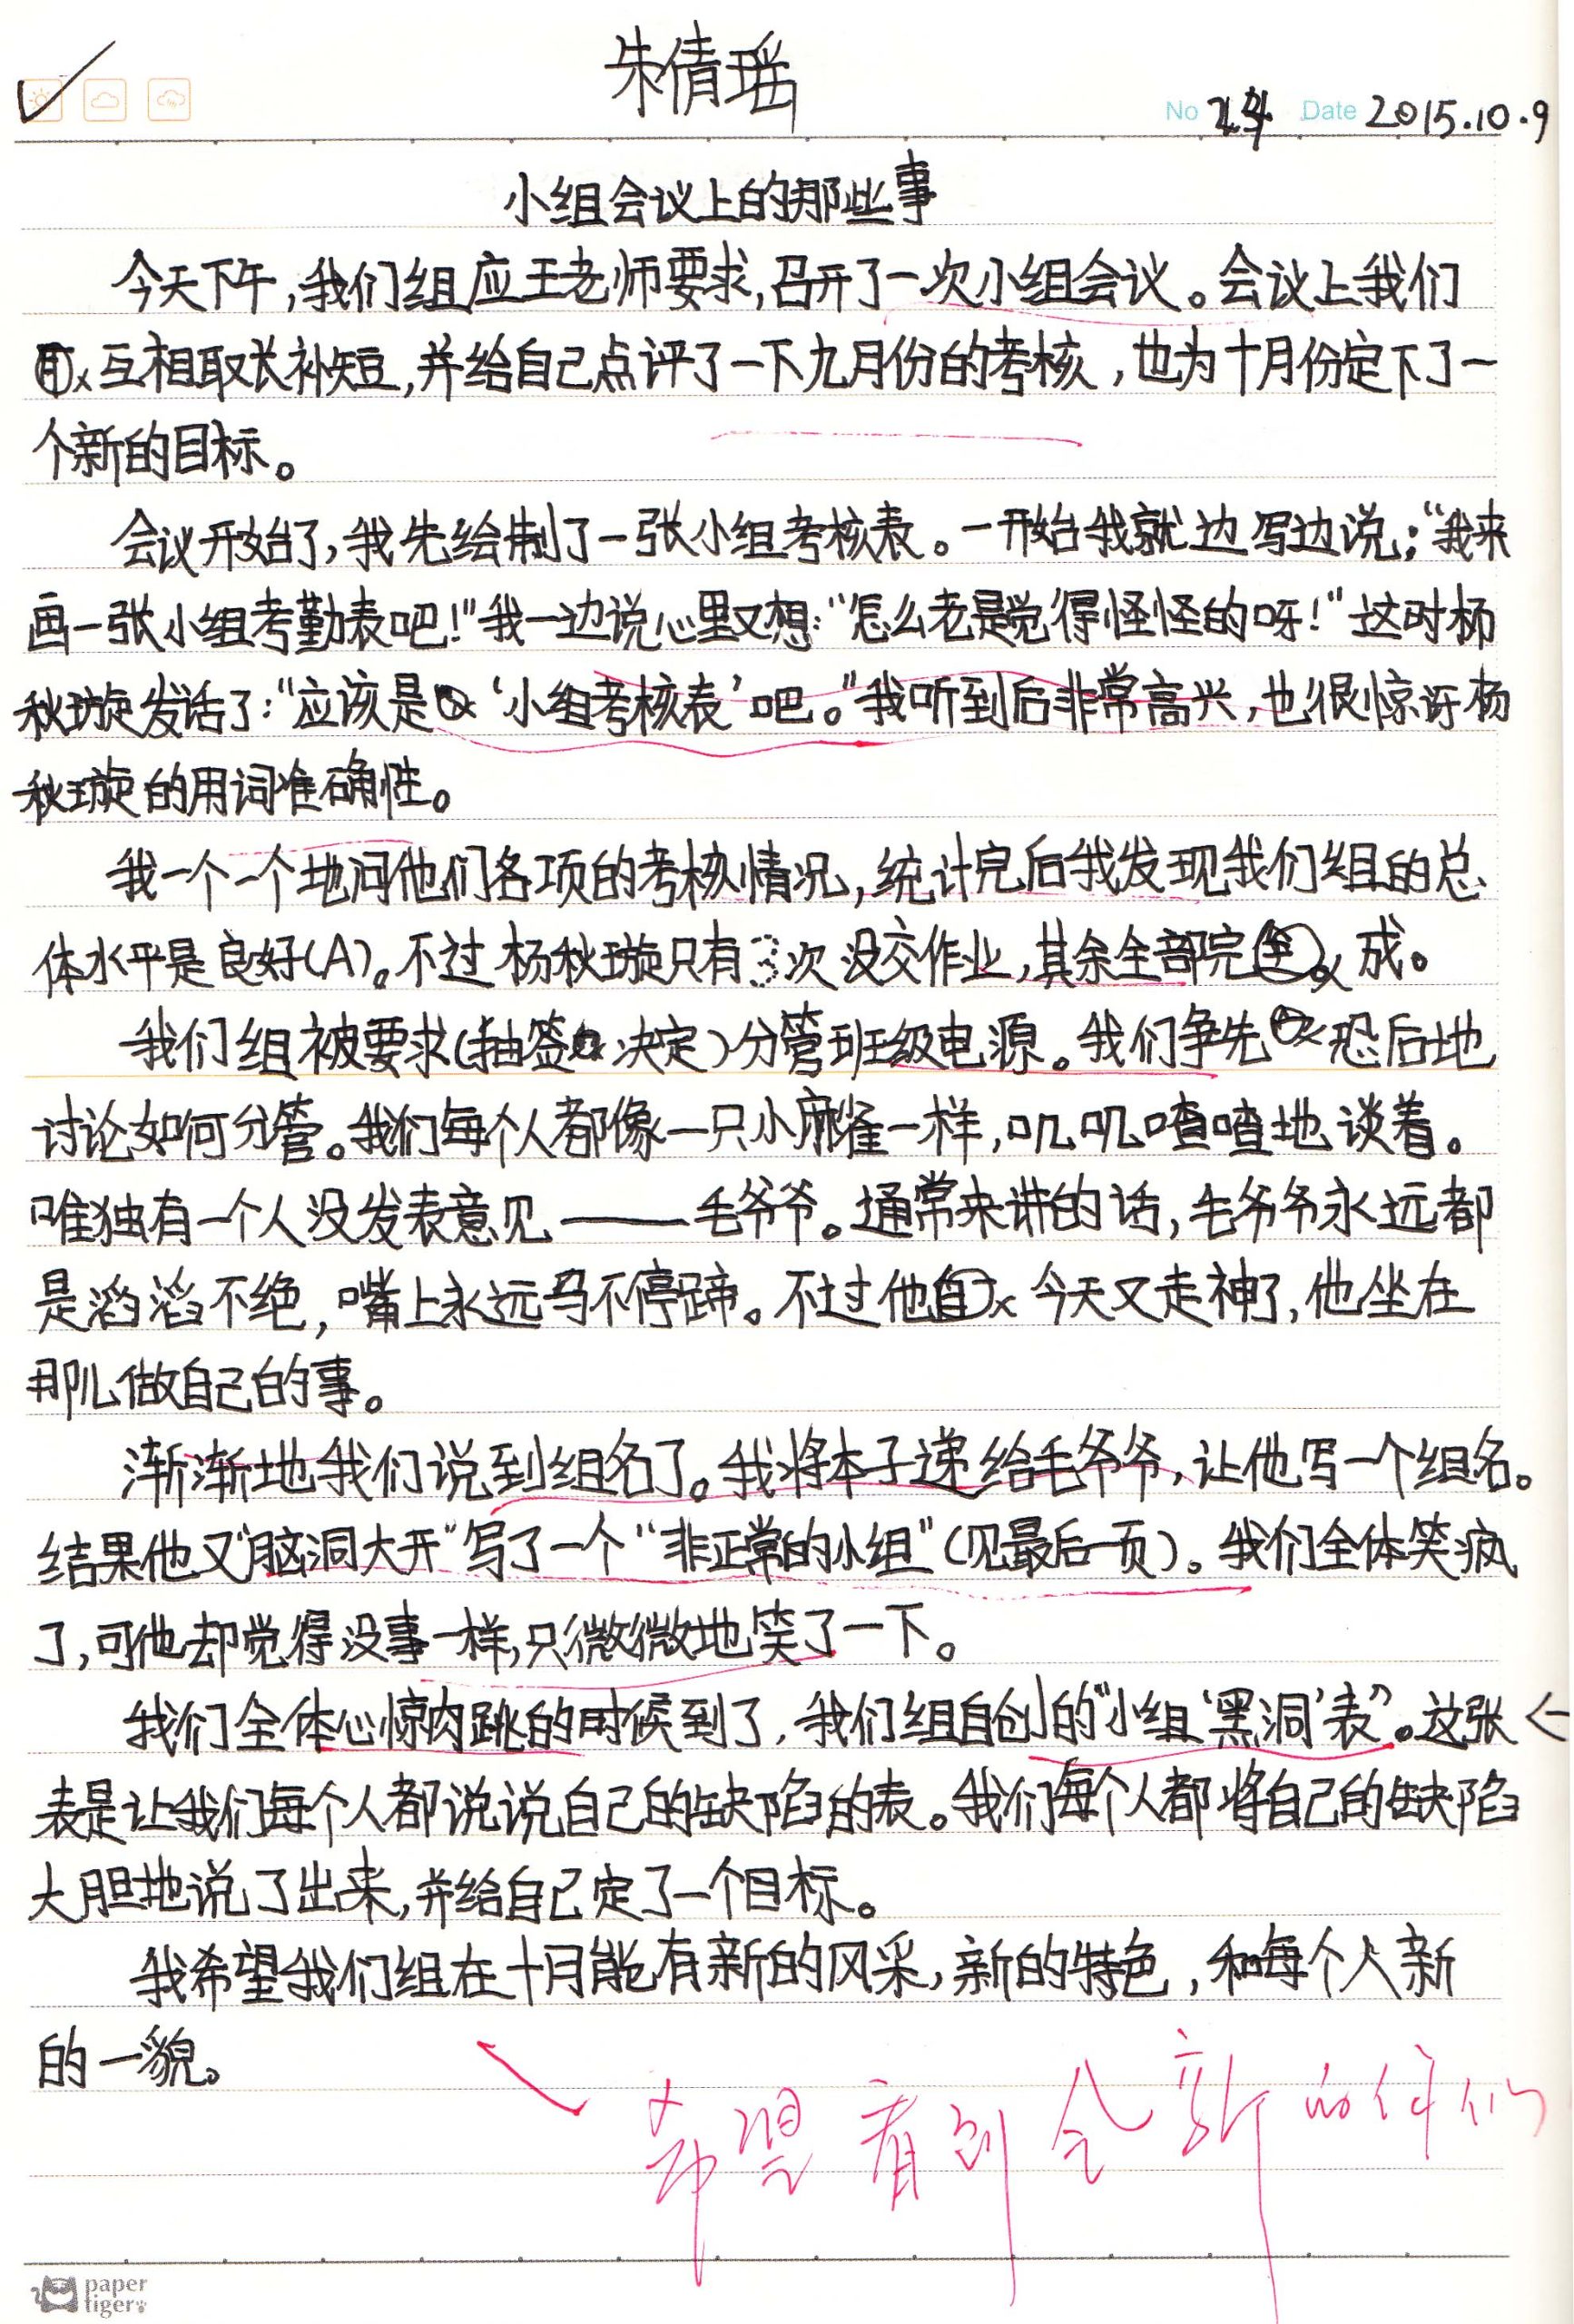 朱倩瑶
No Date 2015.10.9
小组会议上的那些事
今天下午,我们组应王老师要求,召开了一次小组会议。会议上我们
互相取长补短,并给自己点评了一下九月份的考核,也为十月份定下了一
个新的目标。
会议开始了,我先绘制了一张小组考核表。一开始我就边写边说:“我来
画一张小组考勤表吧!”我一边说心里又想:“怎么老是觉得怪怪的呀!”这时杨
秋璇发话了:“应该是‘小组考核表’吧。”我听到后非常高兴,也很惊讶杨
秋璇的用词准确性。
我一个一个地问他们各项的考核情况,统计完后我发现我们组的总
体水平是良好(A)。不过杨秋璇只有3次没交作业,其余全部完成。
我们组被要求(抽签决定)分管班级电源。我们争先恐后地
讨论如何分管。我们每个人都像一只小麻雀一样,叽叽喳喳地谈着。
唯独有一个人没发表意见——毛爷爷。通常来讲的话,毛爷爷永远都
是滔滔不绝,嘴上永远马不停蹄。不过他今天又走神了,他坐在
那儿做自己的事。
渐渐地我们说到组名了。我将本子递给毛爷爷,让他写一个组名。
结果他又“脑洞大开”写了一个“非正常的小组”(见最后一页)。我们全体笑疯
了,可他却觉得没事一样,只微微地笑了一下。
我们全体心惊肉跳的时候到了,我们组自创的“小组‘黑洞’表”。这张←
表是让我们每个人都说说自己的缺陷的表。我们每个人都将自己的缺陷
大胆地说了出来,并给自己定了一个目标。
我希望我们组在十月能有新的风采,新的特色,和每个人新
的一貌。
希望看到全新的你们
paper
tiger